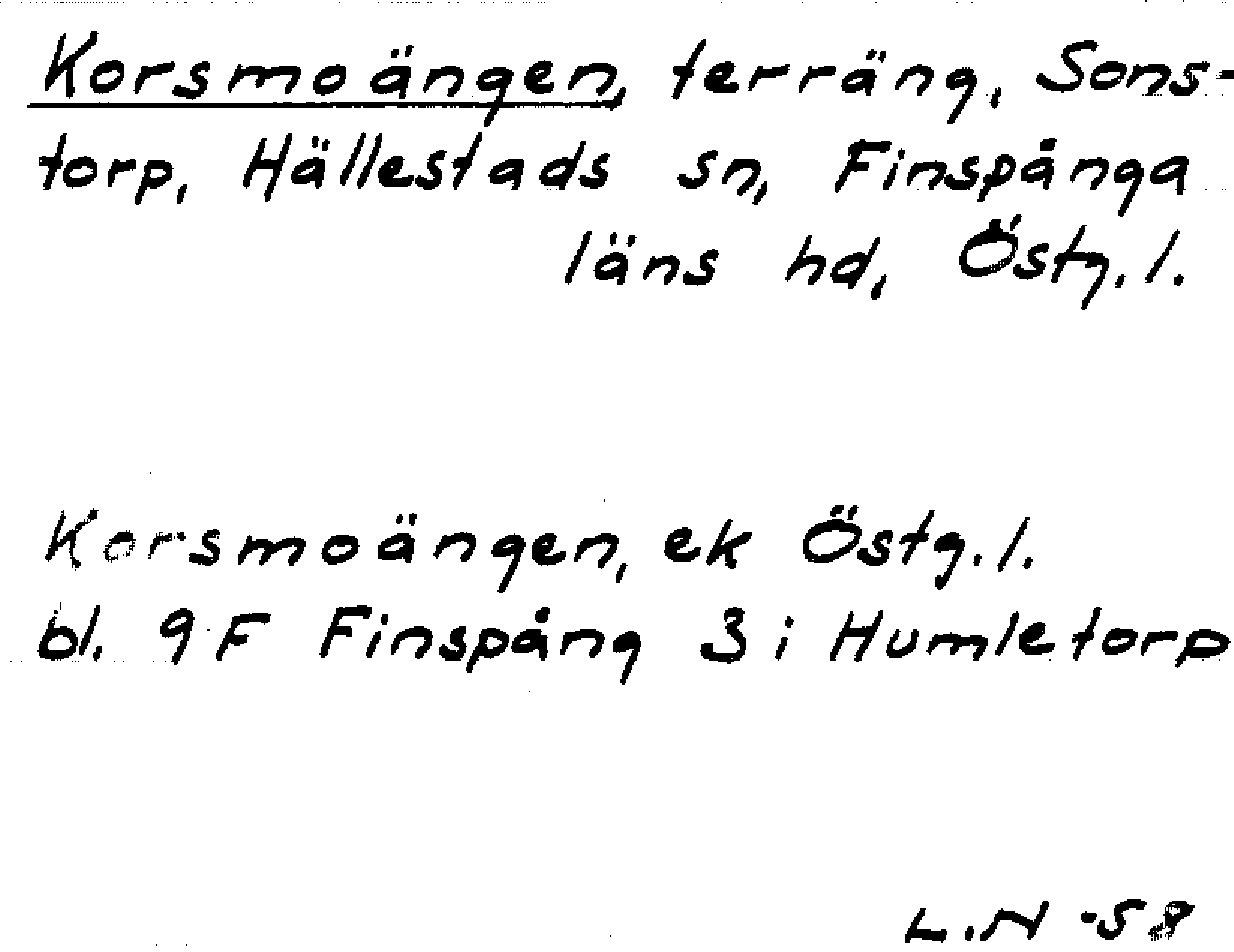 Korsmoängen, terräng, Sons-
torp, Hällestads sn, Finspånga
läns hd, Östg.l.
Korsmoängen, ek Östg.l.
bl. 9 F Finspång 3 i Humletorp
L.N -58